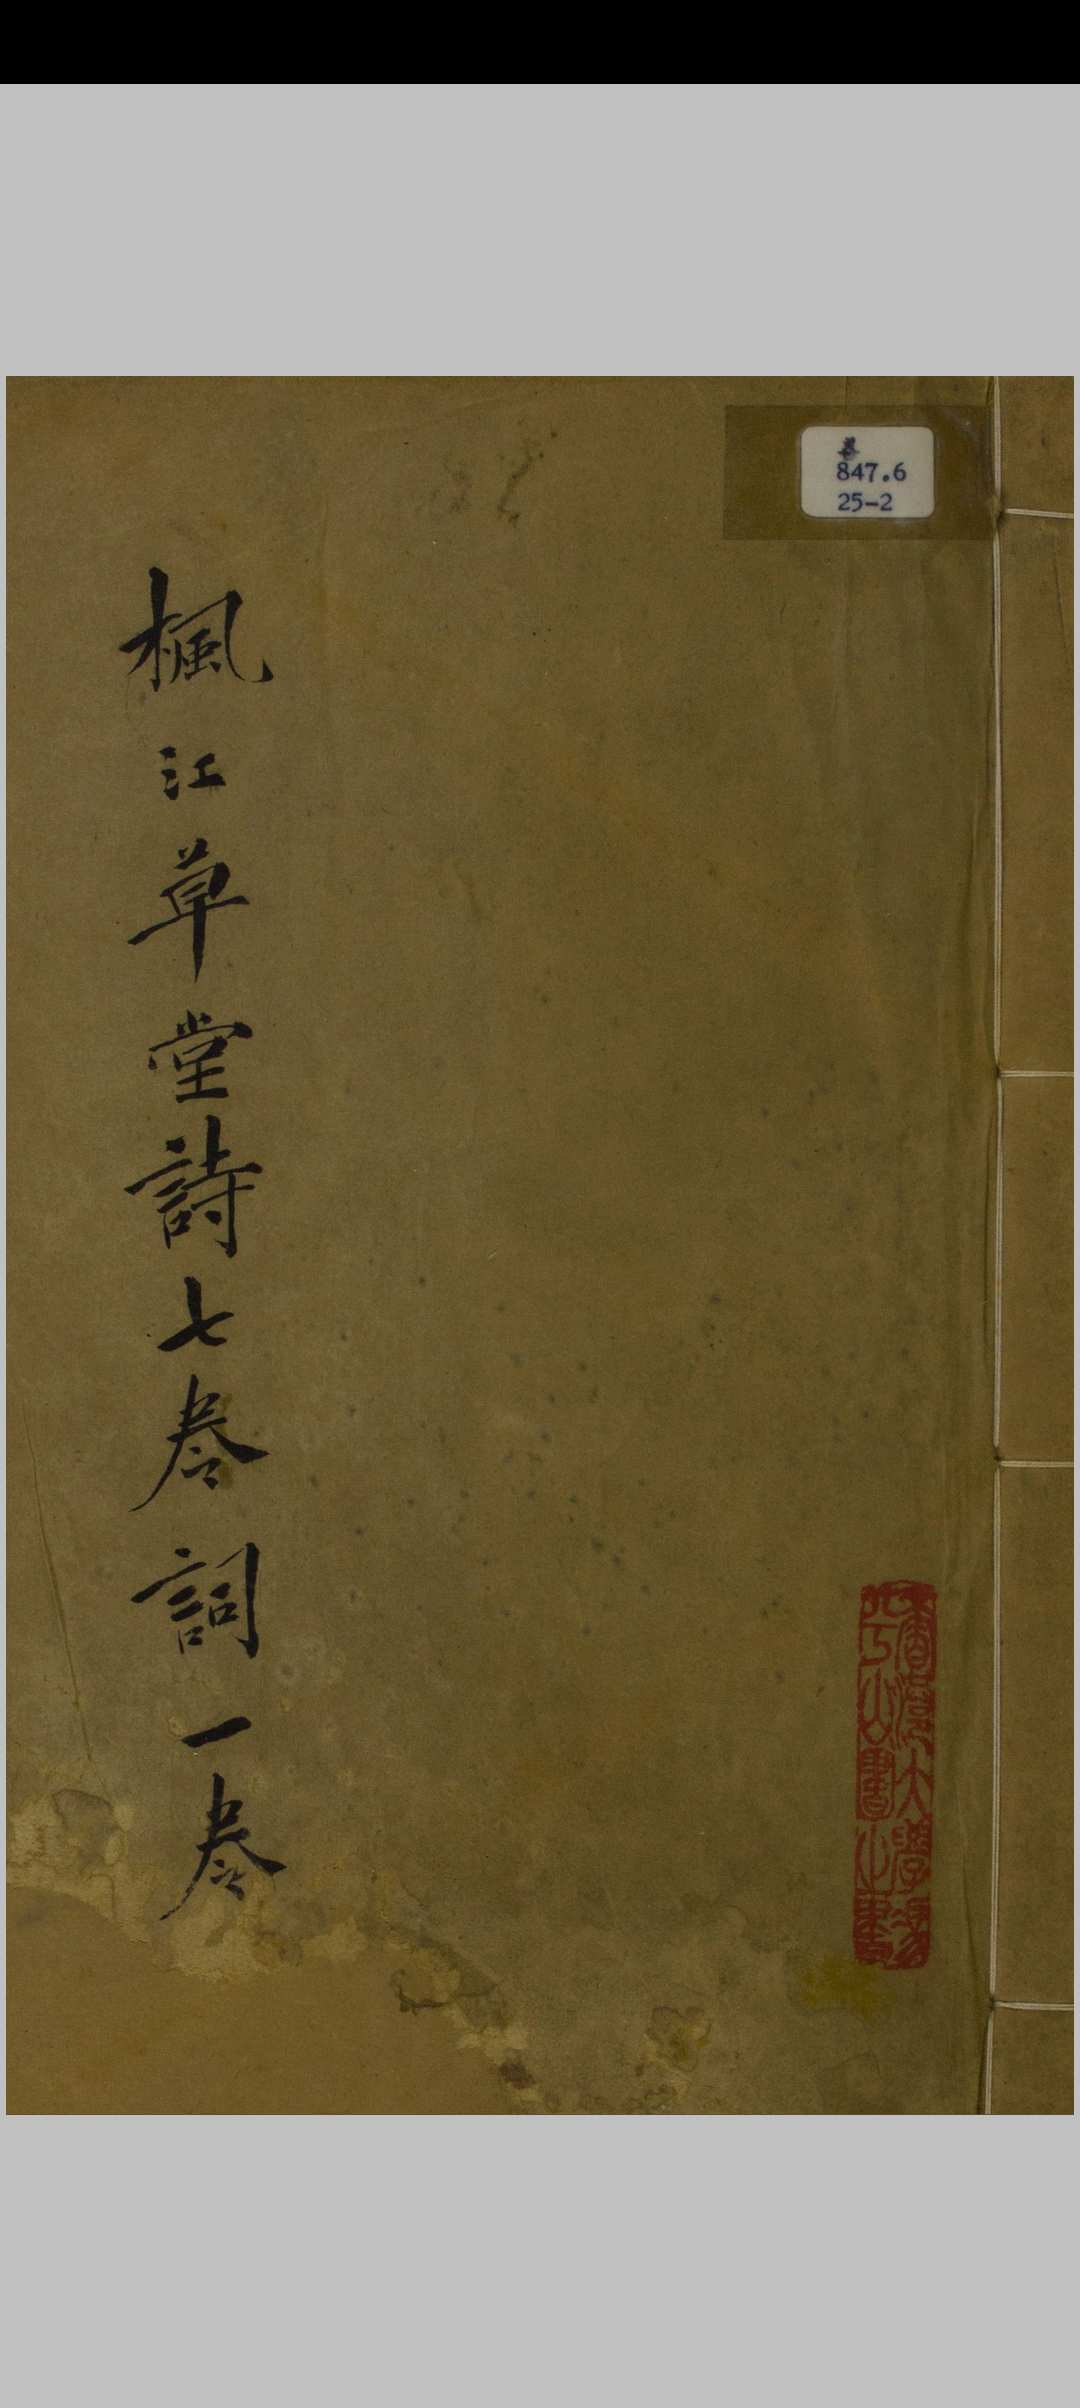 847.6
25-2
楓江草堂詩七卷詞一卷
香港大學馮
平山